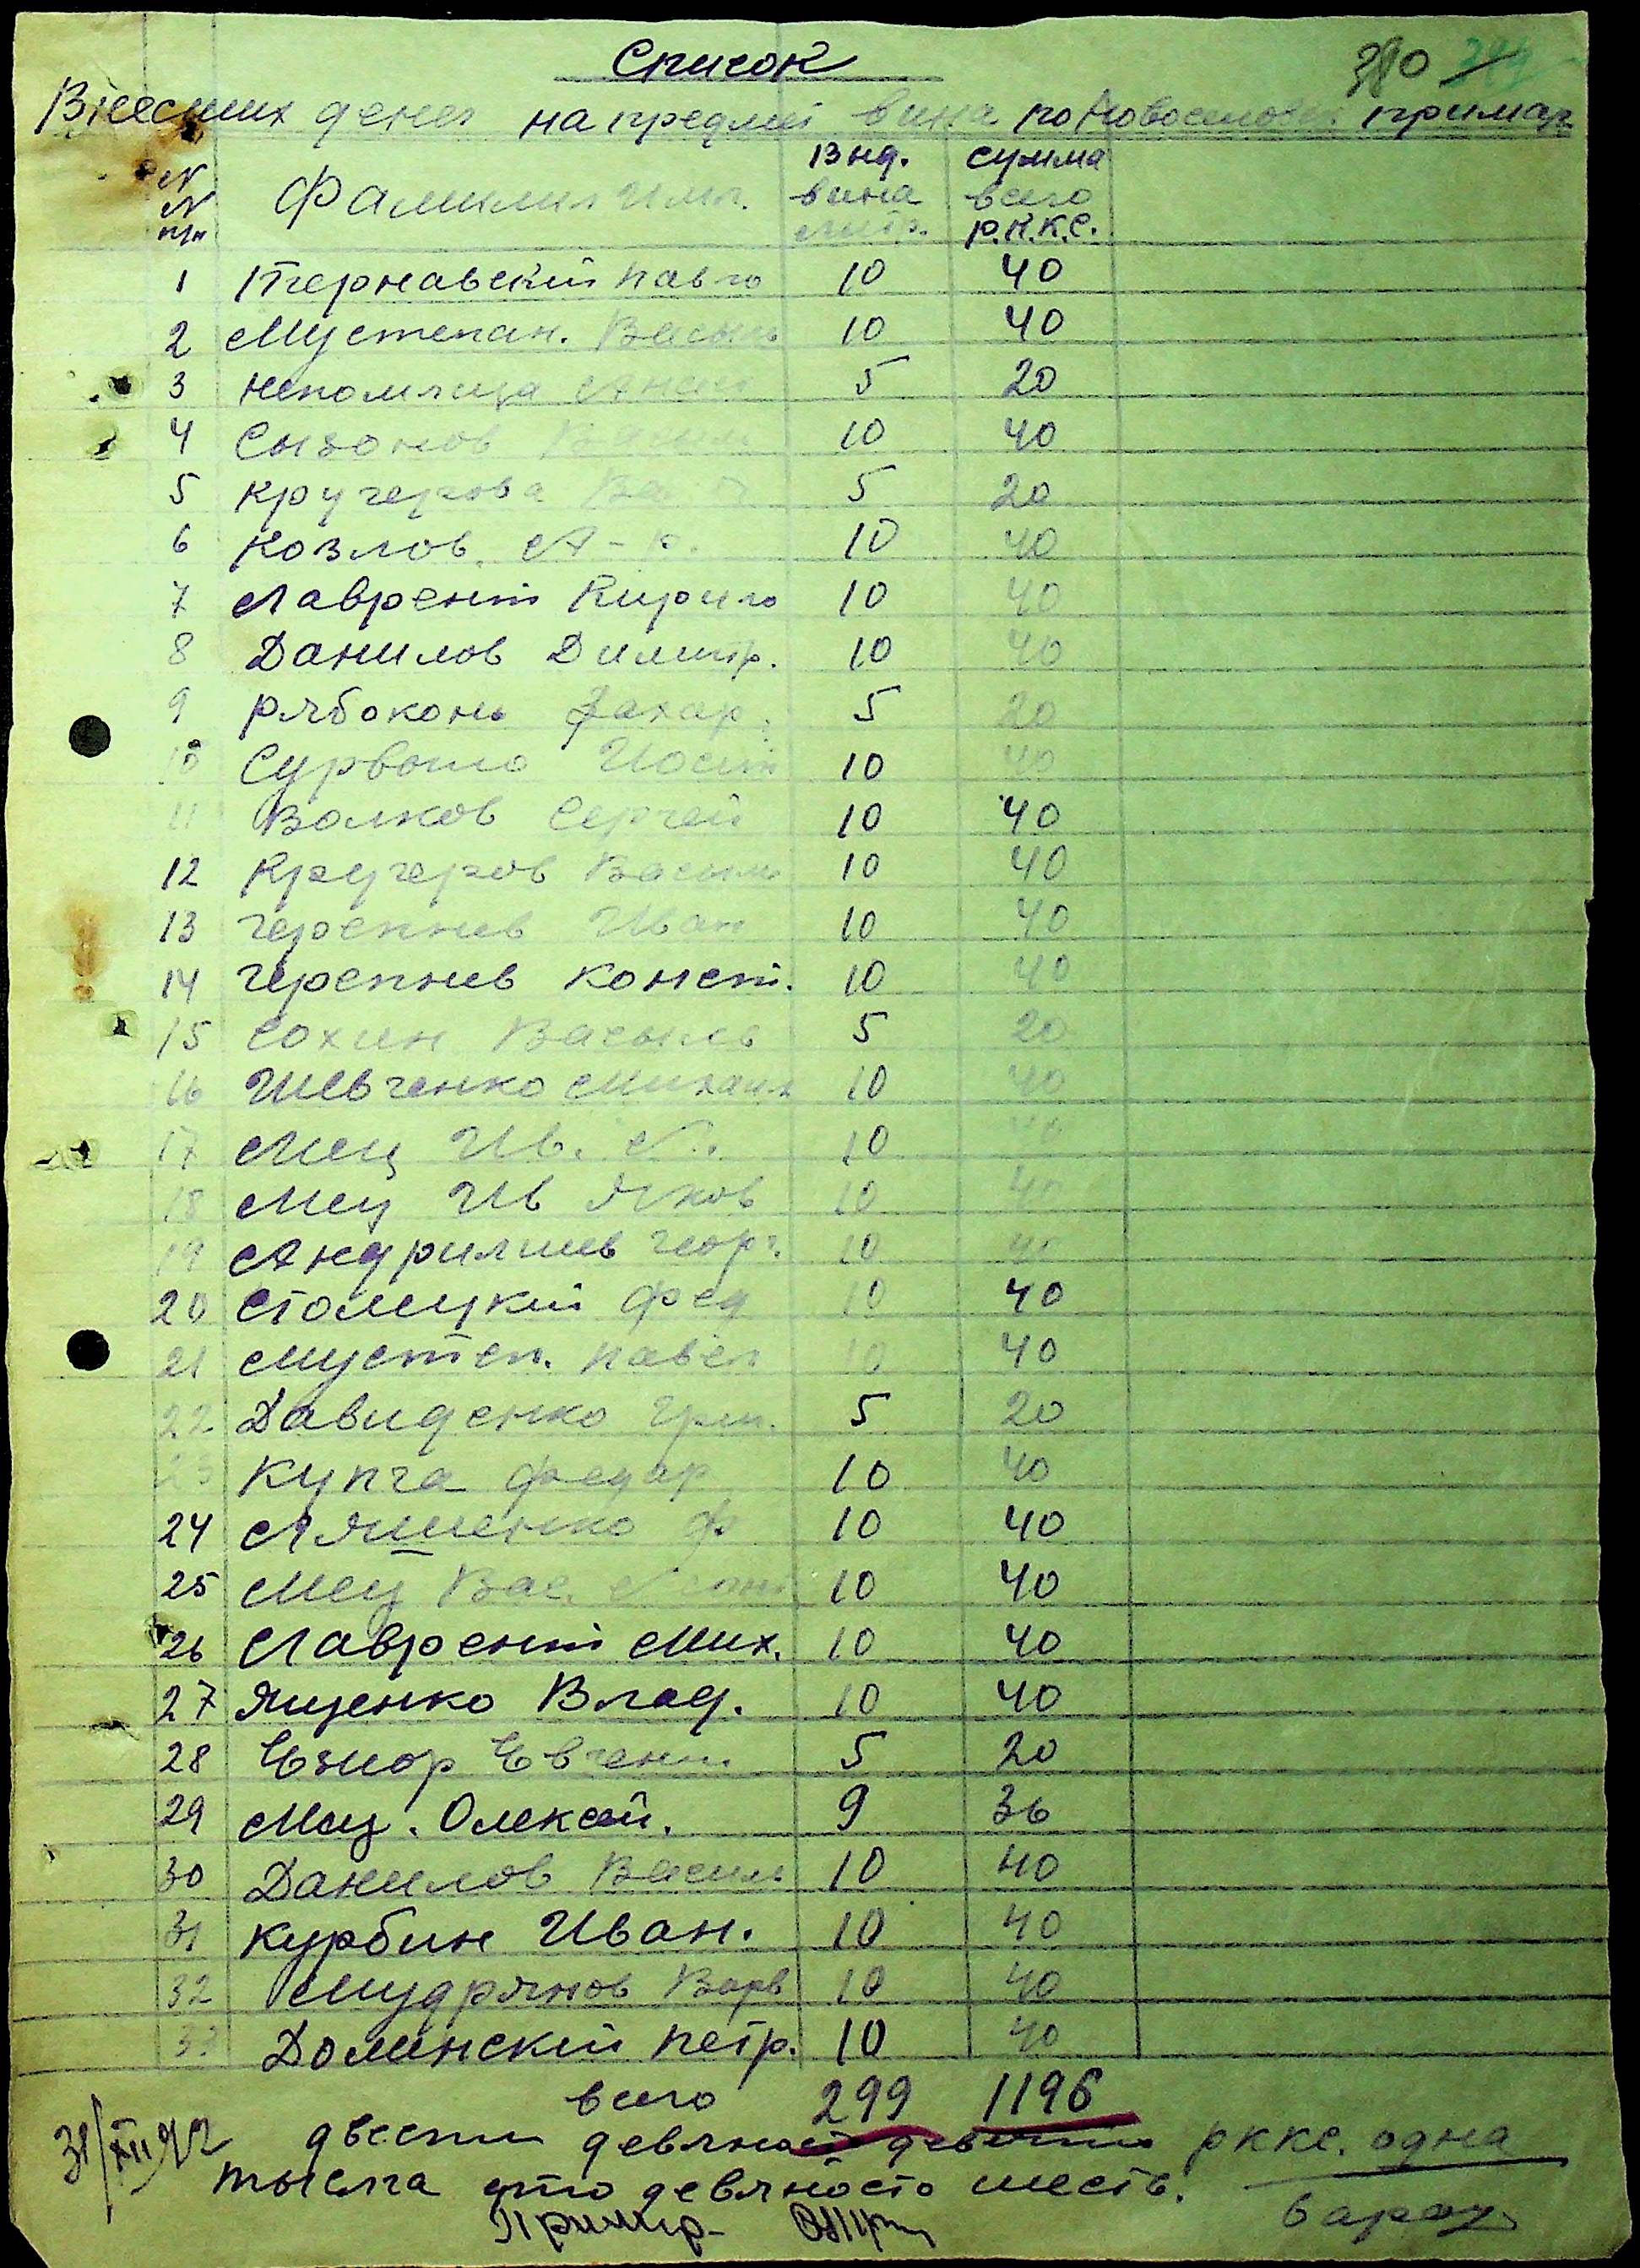 Список
380
Внесших денег на предмет вина по Новоеловск примар
N N п/п Фамилия Имя. Внд. вина литр. сумма всего Р.К.К.С.
1 Тернавский Павло 10 40
2 Мустепан. Василь 10 40
3 Непомляща 5 20
4 Сызонов 10 40
5 Кручерова 5 20
6 Козлов. А-р. 10 40
7 Лаврентй Кирило 10 40
8 Данилов Димитр. 10 40
9 Рябоконь Захар. 5 20
10 Сурвило Иосип 10 40
11 Волков Сергей 10 40
12 Кручеров Василь 10 40
13 Черепнев Иван 10 40
14 Черепнев Конст. 10 40
15 Сохин Василь 5 20
16 Шевченко Михаил 10 40
17 Мец Ив. 10 40
18 Мец Ив Яков 10 40
19 Андрияшев Георг. 10 40
20 Столецкий Фед 10 40
21 Мустеп. Павел 10 40
22 Давиденко Гри. 5 20
23 Купча Федар 10 40
24 Ляшенко Ф 10 40
25 Мец Вас. 10 40
26 Лаврентй Мих. 10 40
27 Ященко Влад. 10 40
28 Евчени 5 20
29 Мец. Олексей. 9 36
30 Данилов Василь 10 40
31 Курбин Иван. 10 40
32 Мудрянов Варв 10 40
33 Долинский Петр. 10 40
всего 299 1196
31/XII 42 двести девяносто девять рккс. одна
тысяча сто девяносто шесть.
Примар-